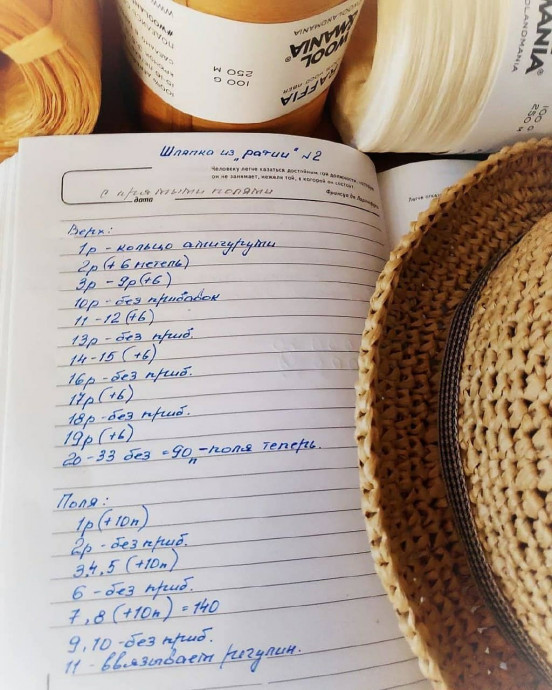 100 G
250 M
RAFFIA
WOOL
XMANIA®
WOOLANDMANIA
100 G
250 M
MANIA®
Шляпка из "рафии" №2
Человеку легче казаться достойным той должности, которой
он не занимает, нежели той, в которой он состоит.
с прямыми полями
дата
Франсуа де
Верх:
1р - кольцо амигуруми
2р (+6 петель)
3р - 9р (+6)
10р - без прибавок
11 - 12 (+6)
13р - без приб.
14 - 15 (+6)
16р - без приб.
17р (+6)
18р - без приб.
19р (+6)
20 - 33 без = 90п - поля теперь.
Поля:
1р (+10п)
2р - без приб.
3,4,5 (+10п)
6 - без приб.
7,8 (+10п) = 140
9,10 - без приб.
11 - ввязывает регилин.